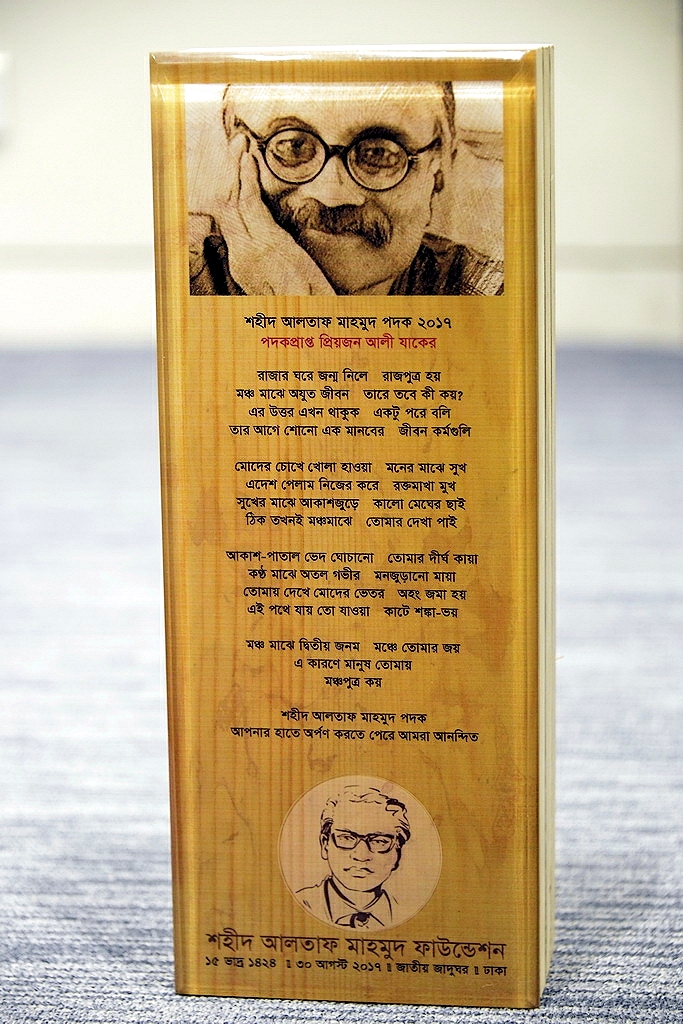 শহীদ আলতাফ মাহমুদ পদক ২০১৭
পদকপ্রাপ্ত প্রিয়জন আলী যাকের
রাজার ঘরে জন্ম নিলে রাজপুত্র হয়
মঞ্চ মাঝে অযুত জীবন তারে তবে কী কয়?
এর উত্তর এখন থাকুক একটু পরে বলি
তার আগে শোনো এক মানবের জীবন কর্মগুলি
মোদের চোখে খোলা হাওয়া মনের মাঝে সুখ
এদেশ পেলাম নিজের করে রক্তমাখা মুখ
সুখের মাঝে আকাশজুড়ে কালো মেঘের ছাই
ঠিক তখনই মঞ্চমাঝে তোমার দেখা পাই
আকাশ-পাতাল ভেদ ঘোচানো তোমার দীর্ঘ কায়া
কণ্ঠ মাঝে অতল গভীর মনজুড়ানো মায়া
তোমায় দেখে মোদের ভেতর অহং জমা হয়
এই পথে যায় তো যাওয়া কাটে শঙ্কা-ভয়
মঞ্চ মাঝে দ্বিতীয় জনম মঞ্চে তোমার জয়
এ কারণে মানুষ তোমায়
মঞ্চপুত্র কয়
শহীদ আলতাফ মাহমুদ পদক
আপনার হাতে অর্পণ করতে পেরে আমরা আনন্দিত
শহীদ আলতাফ মাহমুদ ফাউন্ডেশন
১৫ ভাদ্র ১৪২৪ ॥ ৩০ আগস্ট ২০১৭ ॥ জাতীয় জাদুঘর ॥ ঢাকা